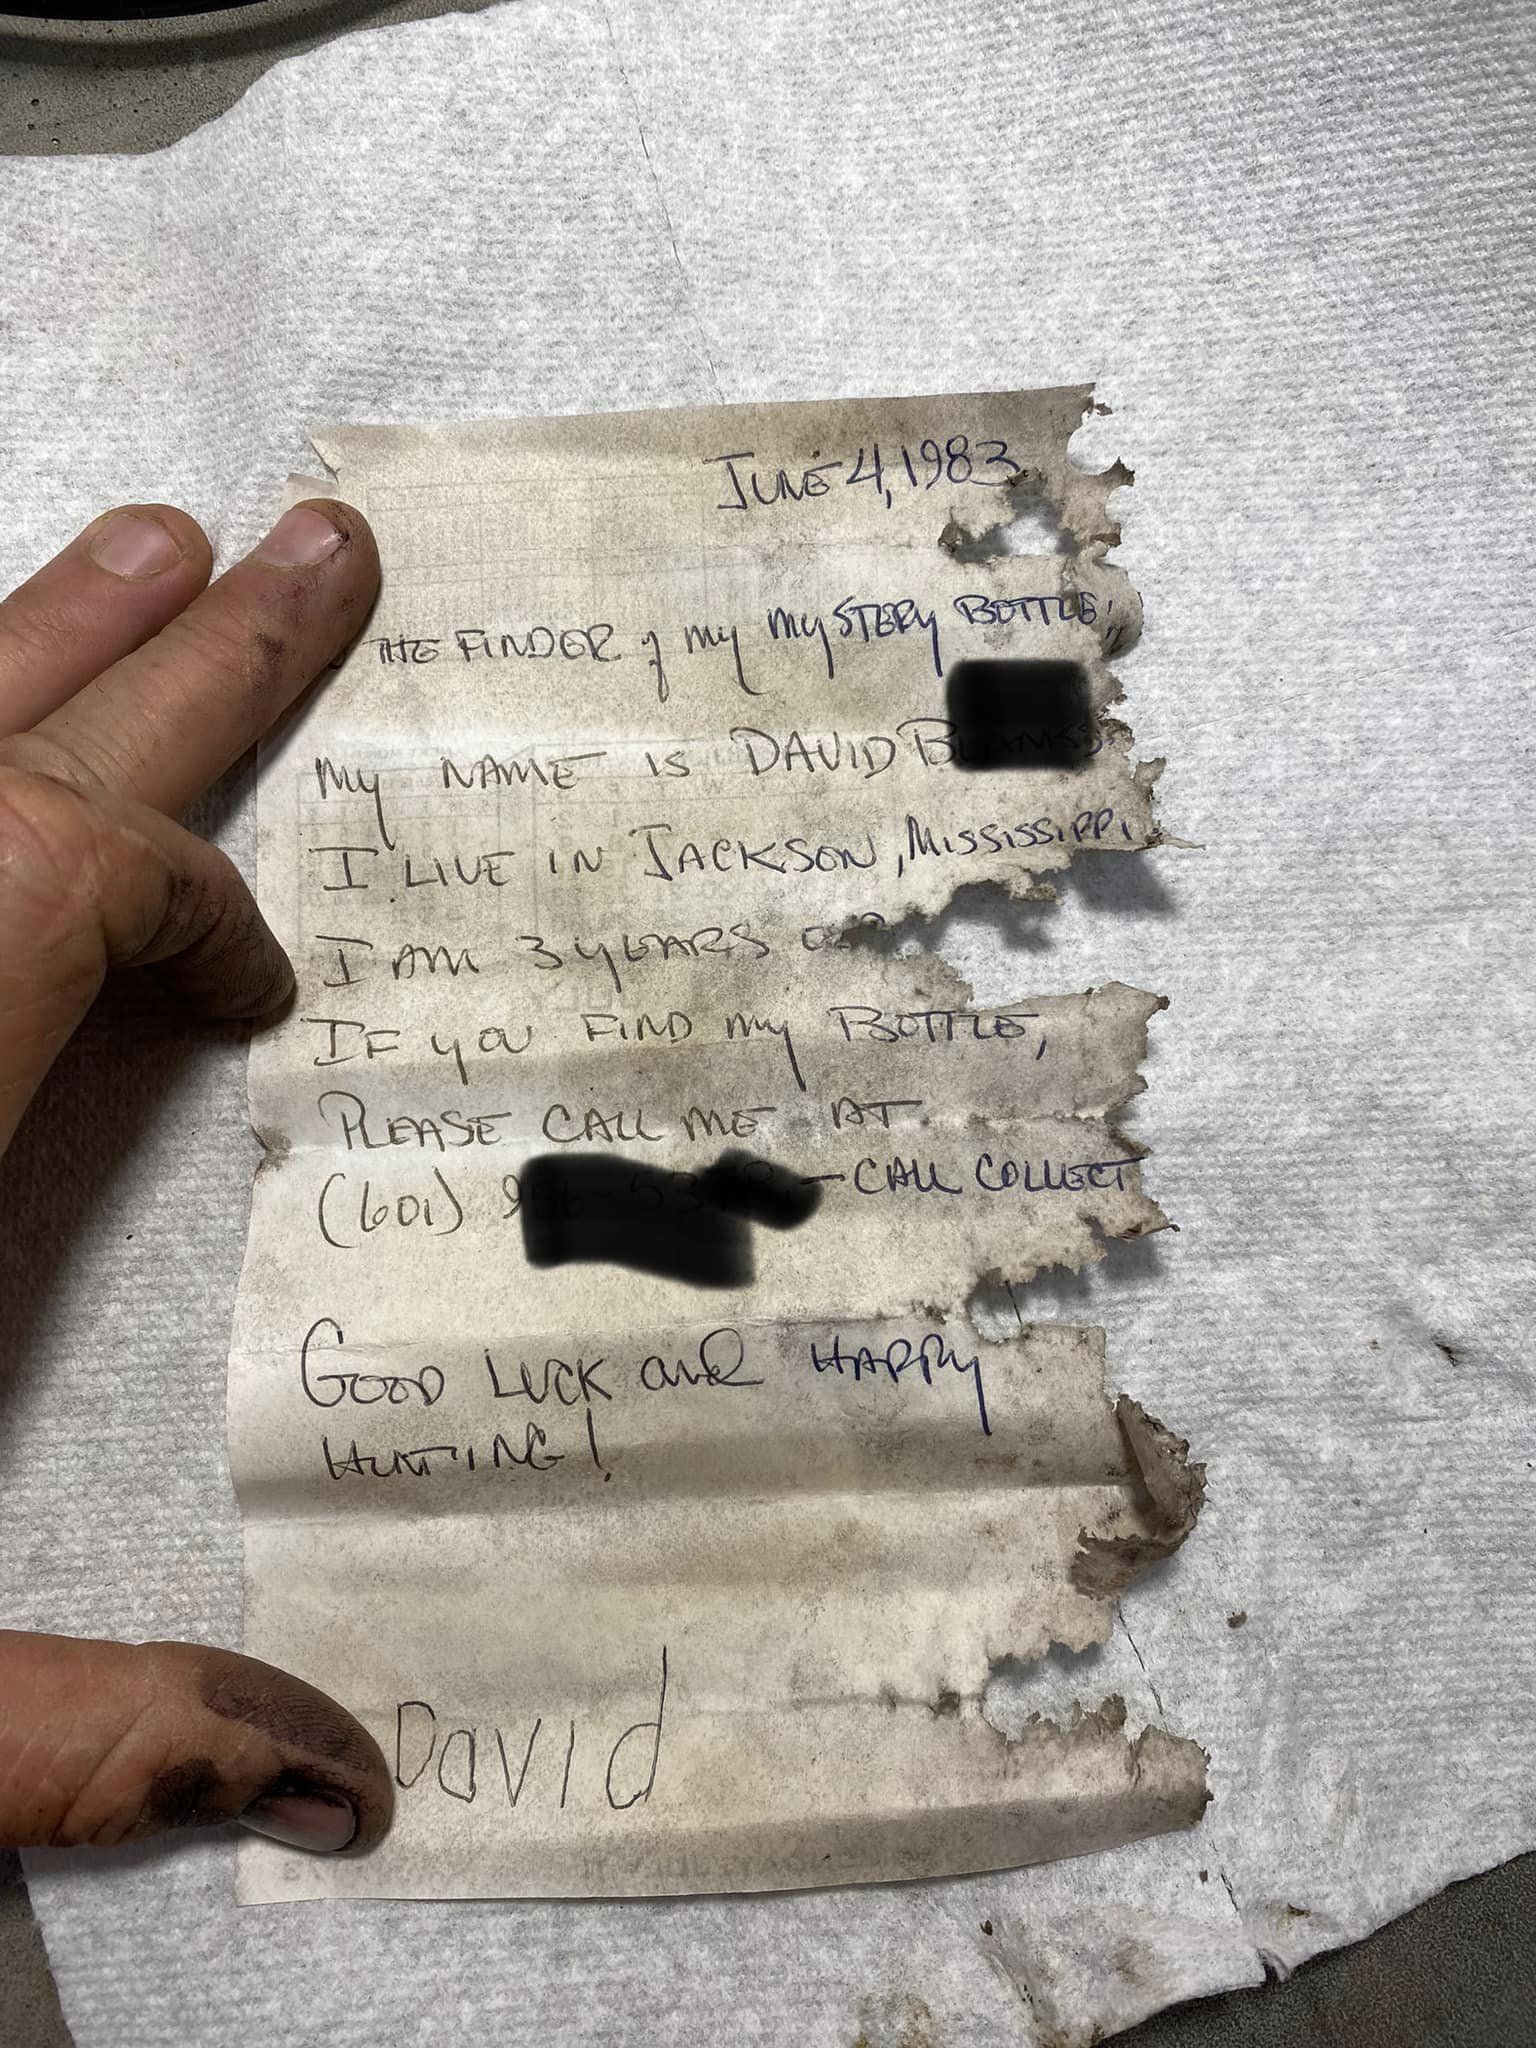 JUNE 4, 1983
THE FINDER of my MYSTERY BOTTLE,
My NAME IS DAVID B
I LIVE IN JACKSON, MISSISSIPPI.
I AM 3 YEARS OLD
IF YOU FIND MY BOTTLE,
PLEASE CALL ME AT
(601) 9 - CALL COLLECT
GOOD LUCK and HAPPY
HUNTING!
David